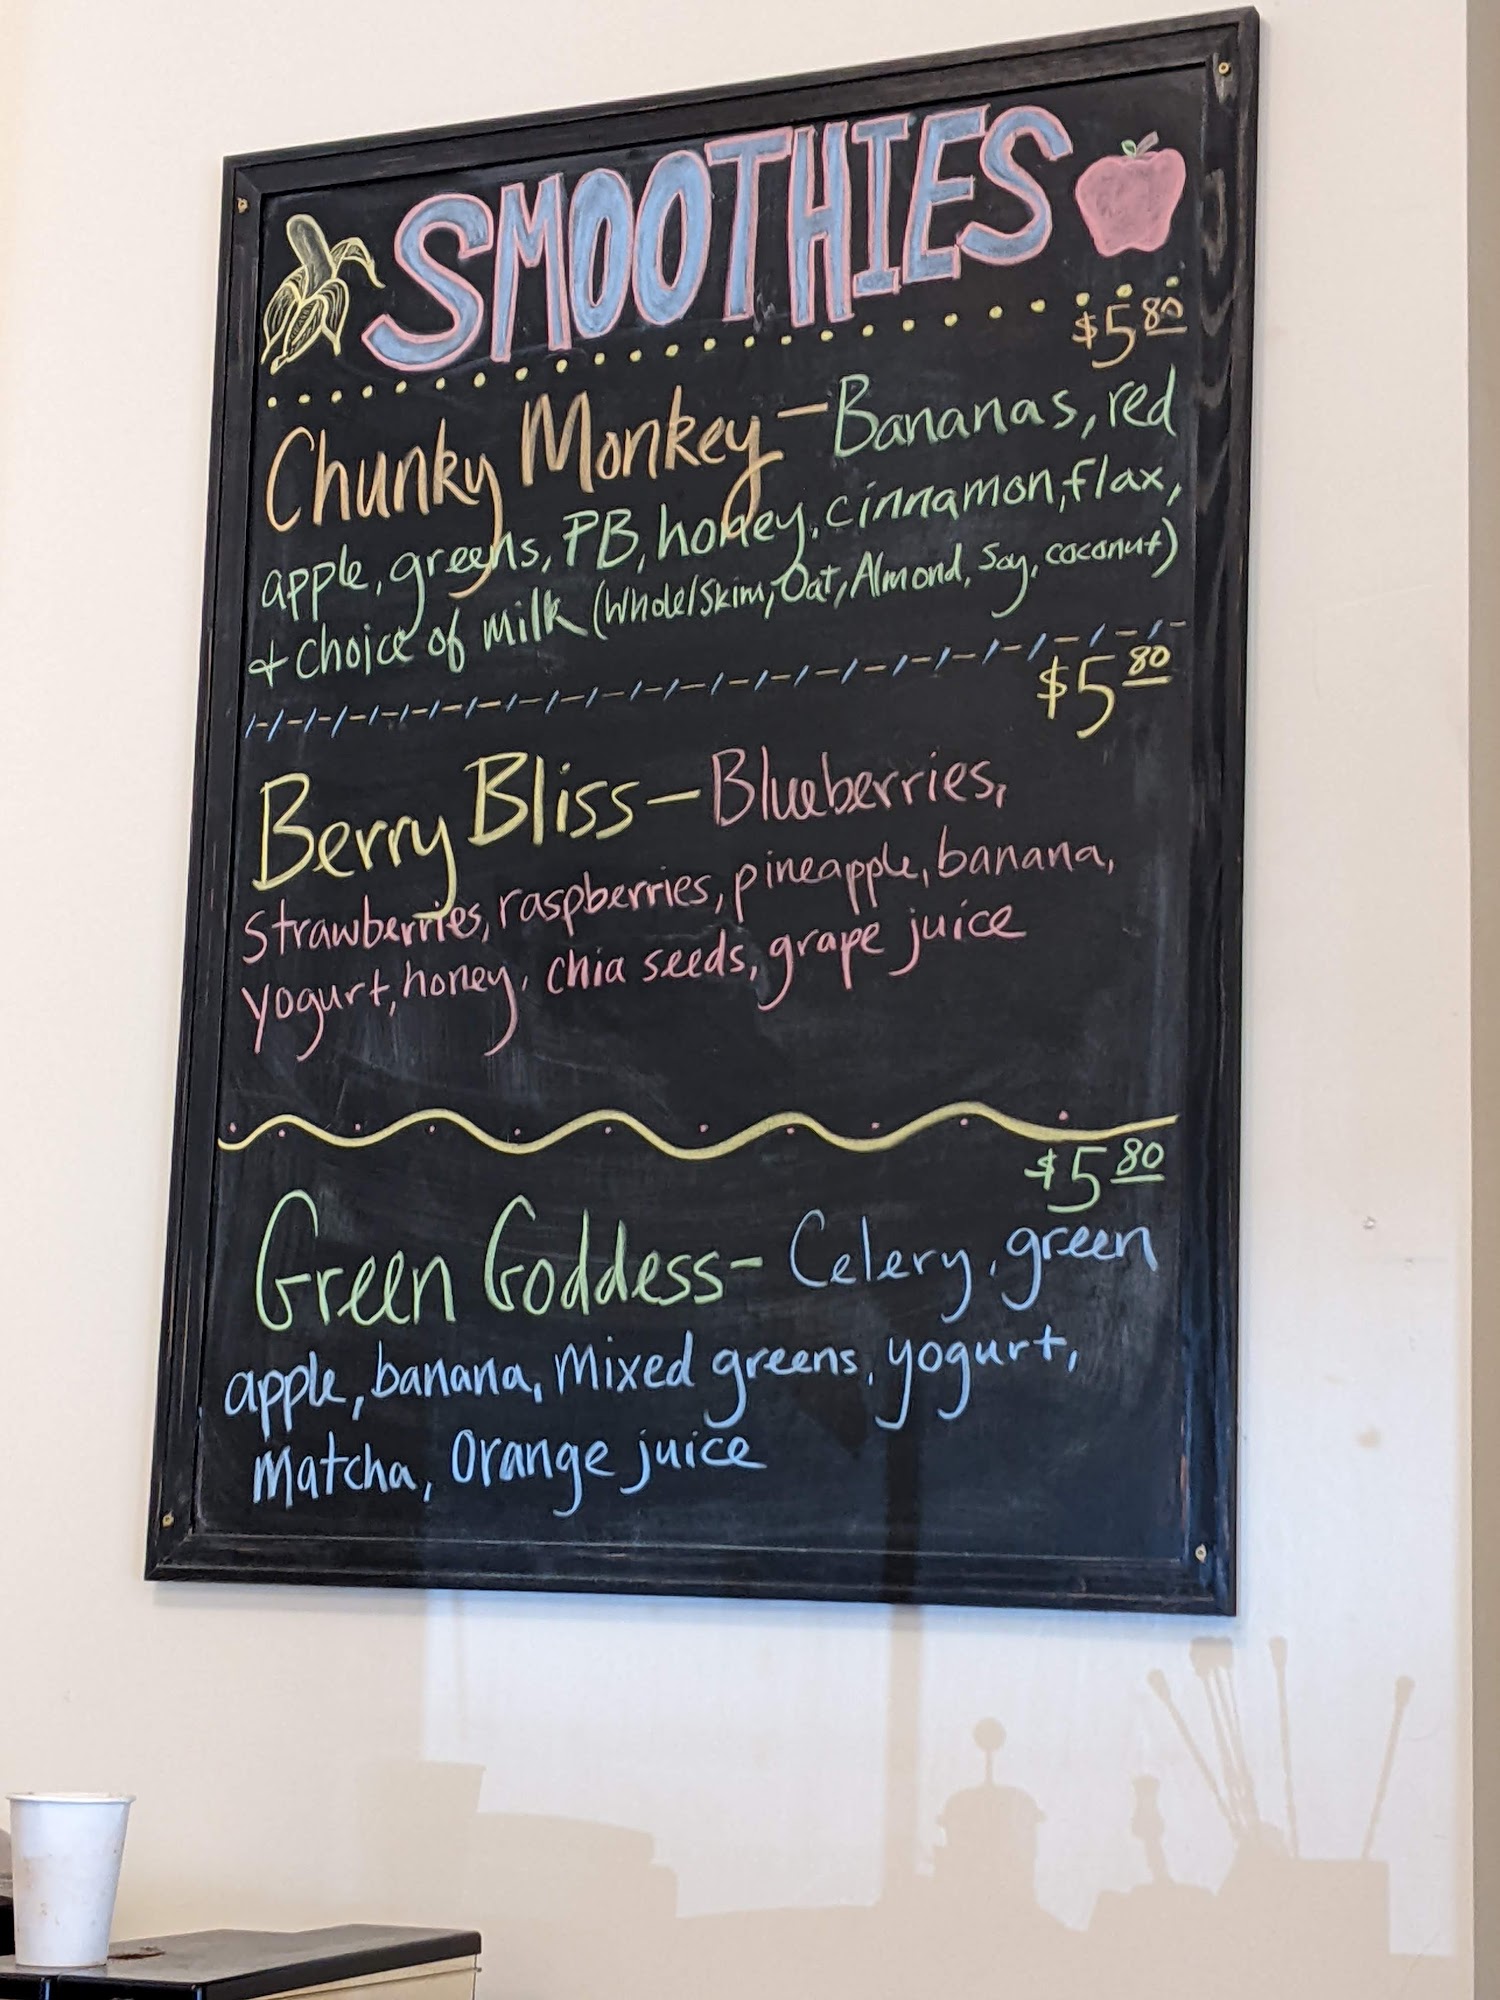 SMOOTHIES
$5 80
Chunky Monkey - Bananas, red
apple, greens, PB, honey, cinnamon, flax,
+ choice of milk (Whole/Skim, Oat, Almond, Soy, coconut)
$5 80
Berry Bliss - Blueberries,
Strawberries, raspberries, pineapple, banana,
yogurt, honey, chia seeds, grape juice
$5 80
Green Goddess - Celery, green
apple, banana, Mixed greens, yogurt,
Matcha, Orange juice